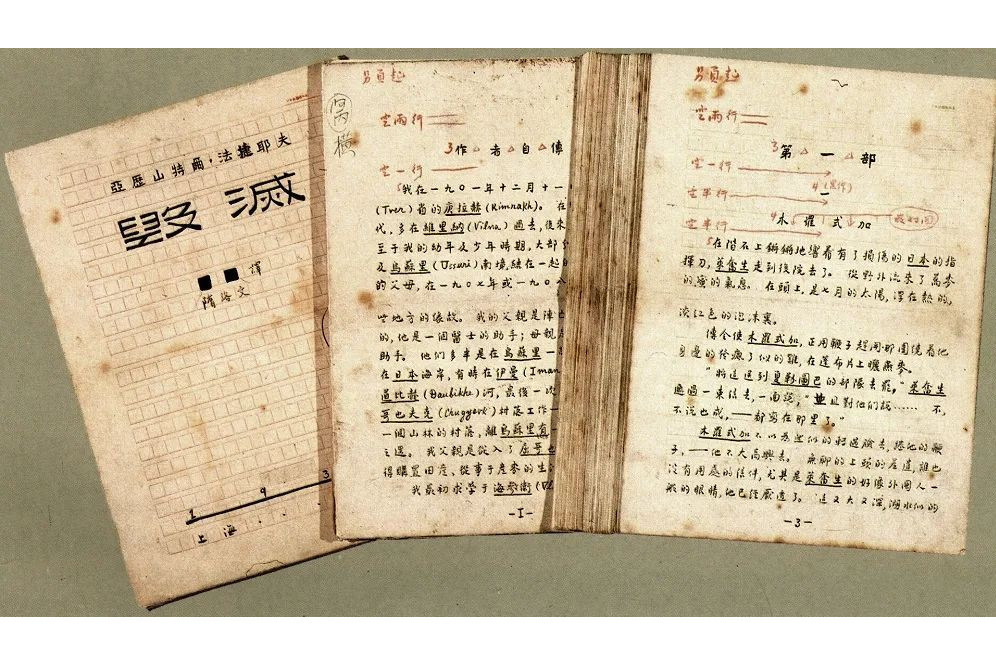 亞歷山特爾·法捷耶夫
毀滅
■■ 譯
隋洛文
1 9 3
上海
另頁起
空兩行
3 作者自傳
空一行
我在一九〇一年十二月十一
(Tver)省的庚拉赫(Kimrakh)。在
代，多在維里納(Vilna)過去，後來
至于我的幼年及少年時期，大部分
及烏蘇里(Ussuri)南境，結在一起
的父母，在一九〇七年或一九〇八
些地方的緣故。我的父親是陣
的，他是一個醫士的助手；母親
助手。他們多半是在烏蘇里一
在日本海岸，有時在伊曼(Iman
道比赫(Daubikhe)河，最後一次
哥也夫克(Chuggevk)村落工作
一個山林的村落，離烏蘇里有
之遙。我父親是從入了屈哥也
得購置田產，從事于產麥的生
我最初求學于海參衛(Vl
-1-
另頁起
空兩行
3 第一部
空一行
一
空半行
4 木羅式加
空半行
5 在階石上鏘鏘地響着有了損傷的日本的指
揮刀，萊奮生走到後院去了。從野外流來了蕎麥
的蜜的氣息。在頭上，是七月的太陽，浮在熱的，
淡紅色的泡沫裏。
傳令使木羅式加，正用鞭子趕開那圍繞着他
的發瘋了似的雞，在篷布片上曬燕麥。
“將這送到夏勒圖巴的部隊去罷。”萊奮生
遞過一束信去，一面說，“並且對他們說…… 不，
不說也成，——都寫在那里了。”
木羅式加不以為然似的轉過臉去，捲他的鞭
子，——他不大高興去。無聊的上頭的差遣，誰也
沒有用處的信件，尤其是萊奮生的好像外國人一
般的眼睛，他已經厭透了。這又大又深，湖水似的
-3-